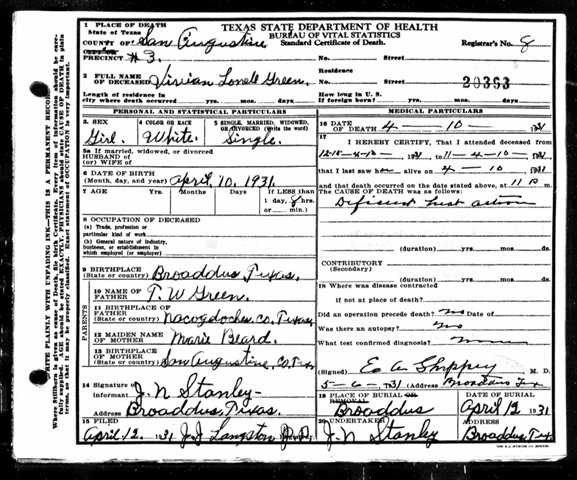 1 PLACE OF DEATH
State of Texas
TEXAS STATE DEPARTMENT OF HEALTH
BUREAU OF VITAL STATISTICS
COUNTY OF San Augustine
Standard Certificate of Death.
Registrar's No. 8
PRECINCT #3.
No. Street
2 FULL NAME OF DECEASED Vivian Lonell Green.
Residence No. Street
20363
Length of residence in city where death occurred yrs. mos. ds.
How long in U. S. if foreign born? yrs. mos. ds.
PERSONAL AND STATISTICAL PARTICULARS
MEDICAL PARTICULARS
3. SEX
Girl.
4 COLOR OR RACE
White.
5 SINGLE, MARRIED, WIDOWED, OR DIVORCED (Write the word)
Single.
16 DATE OF DEATH 4 - 10 - 1931
17 I HEREBY CERTIFY, That I attended deceased from
12-15-4-10- 1931 to 11-4-10- 1931
5a If married, widowed, or divorced
HUSBAND of
(or) WIFE of
that I last saw her alive on 4 - 10 1931
6 DATE OF BIRTH
(Month, day, and year) April, 10, 1931.
and that death occurred on the date stated above, at 11 P m.
7 AGE Yrs. Months Days If LESS than 1 day, hrs. or min.
The CAUSE OF DEATH was as follows:
Deficient heart action
8 OCCUPATION OF DECEASED
(a) Trade, profession or particular kind of work
(b) General nature of industry, business, or establishment in which employed (or employer)
(duration) yrs. mos. ds.
CONTRIBUTORY
(Secondary)
(duration) yrs. mos. ds.
9 BIRTHPLACE
(State or country) Broaddus, Texas.
18 Where was disease contracted
if not at place of death?
PARENTS
10 NAME OF FATHER T. W Green.
11 BIRTHPLACE OF FATHER
(State or country) Nacogdoches, Co. Texas
Did an operation precede death? no Date of
Was there an autopsy? no
12 MAIDEN NAME OF MOTHER Marie Beard.
What test confirmed diagnosis?
13 BIRTHPLACE OF MOTHER
(State or country) San Augustine, Co. Tex
(Signed) E. A. M. D.
5 - 6 - 1931 (Address Broaddus Tex
14 Signature of informant J. N Stanley-
Address Broaddus, Texas.
19 PLACE OF BURIAL OR REMOVAL
Broaddus
DATE OF BURIAL
April 12 1931
15 FILED
April, 12. 1931 J. J. Langston
20 UNDERTAKER
J. N Stanley
ADDRESS
Broaddus, Tex